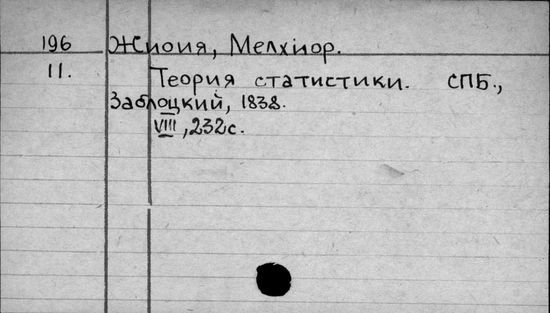 196 Жиоия, Мелхіор.
11. Теория статистики. СПБ.,
Заблоцкий, 1838.
VIII, 232 с.